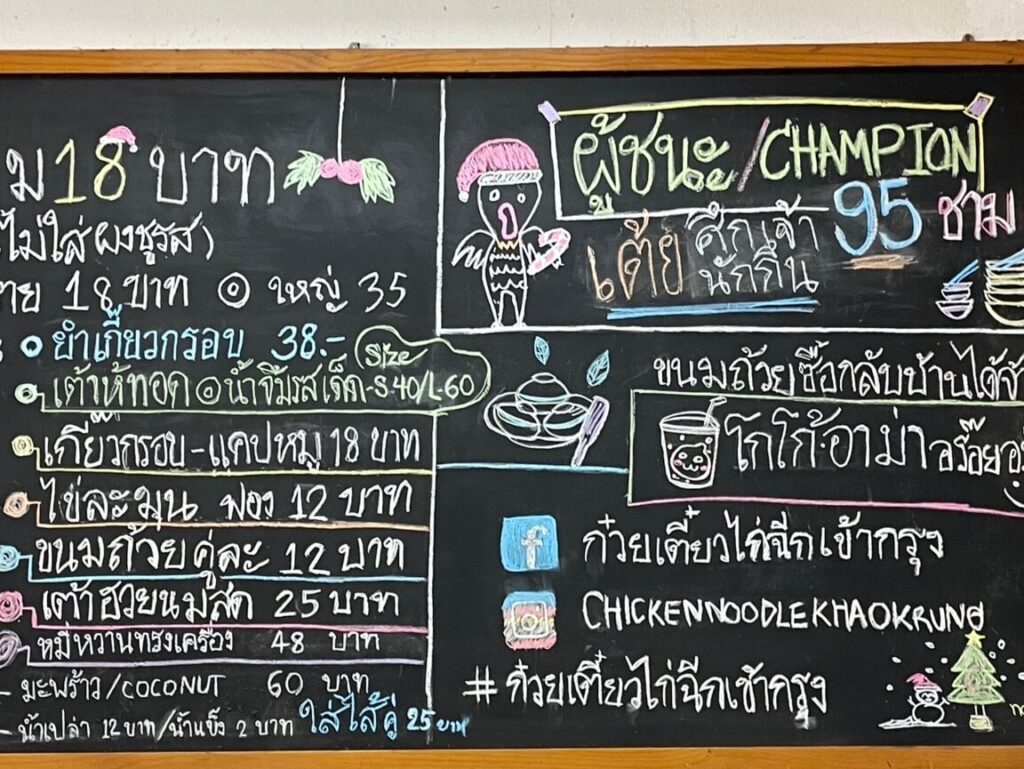 ม 18 บาท
ไม่ใส่ผงชูรส)
18 บาท ๏ ใหญ่ 35
ยำเกี๊ยวกรอบ 38.-
เต้าหู้ทอด ๏ น้ำจิ้มรสเด็ด-S.40/L-60
Size
เกี๊ยวกรอบ-แคปหมู 18 บาท
ไข่ละมุน ฟอง 12 บาท
ขนมถ้วยคู่ละ 12 บาท
เต้าฮวยนมสด 25 บาท
หมี่หวานทรงเครื่อง 48 บาท
- มะพร้าว/COCONUT 60 บาท
- น้ำเปล่า 12 บาท/น้ำแข็ง 2 บาท
ใส่ไส้คู่ 25 บาท
ผู้ชนะ/CHAMPION
เต้ย ศึกเจ้า 95 ชาม
นักกิน
ขนมถ้วยซื้อกลับบ้านได้จ้า
โกโก้.อาม่า อร๊อย
f
ก๋วยเตี๋ยวไก่ฉีกเข้ากรุง
CHICKENNOODLEKHAOKRUNG
#ก๋วยเตี๋ยวไก่ฉีกเข้ากรุง